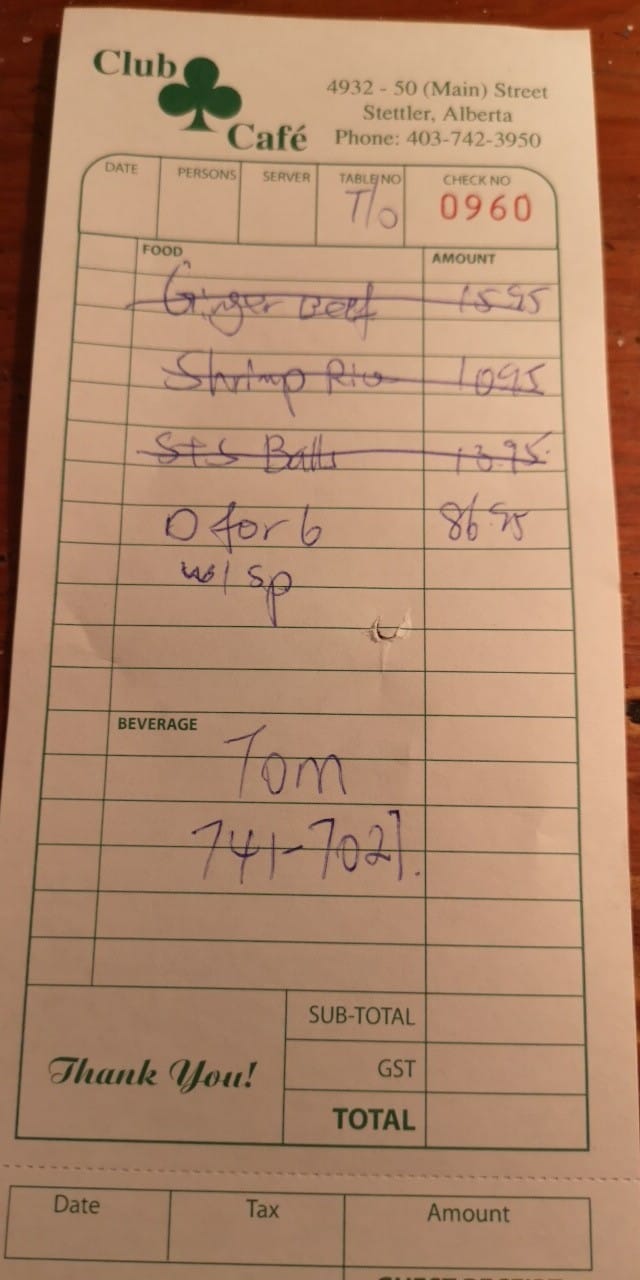 Club Café
4932 - 50 (Main) Street
Stettler, Alberta
Phone: 403-742-3950
DATE PERSONS SERVER TABLE NO CHECK NO
T/o 0960
FOOD AMOUNT
Ginger Beef 15.95
Shrimp Rice 10.95
S+S Balls 13.95
D for 6 86.95
w/ sp
BEVERAGE
Tom
741-7021.
SUB-TOTAL
Thank You! GST
TOTAL
Date Tax Amount